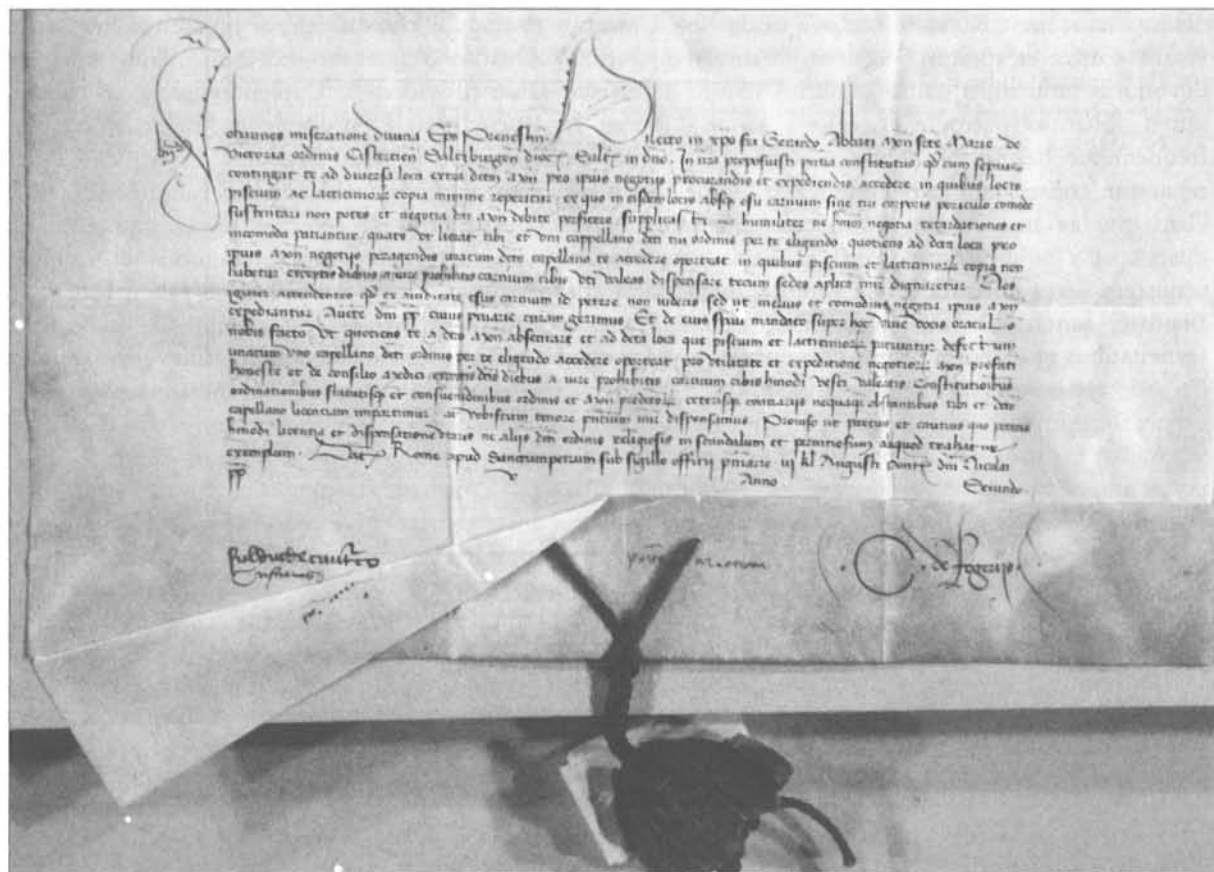 ohannes miseratione divina Epus Prenestin. ilecto in xpo fri Gerardo Abbati mon sce Marie de
Victoria ordinis Cistertien Saltzburgen dioc Salt in dno. In nra proposuisti pntia constitutus qd cum sepius
contingat te ad diversa loca extra dictm mon pro ipius negotijs procurandis et expediendis accedere in quibus locis
piscium ac lacticinior copia minime reperitur et que in eisdem locis absqz esu carnium sine tui corporis periculo comode
sustentari non potes et negotia dti mon debite perficere supplicasti humiliter ne hmoi negotia retardationes et
incomoda patiantur quare ut liceat tibi et uni cappellano dicti tui ordinis per te eligendo quotiens ad dta loca pro
ipius mon negotijs peragendis unacum dicto capellano te accedere oporteat in quibus piscium et lacticinior copia non
habetur exceptis diebus a iure prohibitis carnium cibis vesci valeas dispensare tecum sedes aplica mir dignaretur. Nos
igitur attendentes qd ex aviditate esus carnium id petere non videris sed ut melius et comodius negotia ipius mon
expediantur. Aucte dni pp cuius pniarie curam gerimus Et de eius spuali mandato super hoc vive vocis oraculo
nobis facto Ut quotiens te a dicto mon absentare et ad dicta loca que piscium et lacticinior patiuntur defectum
unacum uno capellano dicti ordinis per te eligendo accedere oporteat pro utilitate et expeditione negotior mon prefati
honeste et de consilio medici exceptis dictis diebus a iure prohibitis carnium cibis hmodi vesci valeatis. Constitutionibus
ordinationibus statutisqz et consuetudinibus ordinis et mon predictor ceterisqz contrarijs nequaqz obstantibus tibi et dicto
capellano licentiam impartimur ac vobiscum tenore pntium mir dispensamus. Proviso ut parcius et cautius quo poteris
hmodi licentia et dispensatione utaris ne alijs dictm ordinis religiosis in scandalum et pernitiosum aliquod trahatur
exemplum. Dat Rome apud Sanctumpetrum sub sigillo officij pniarie vi kl Augusti Pont dni Nicolai
pp v Anno Secundo